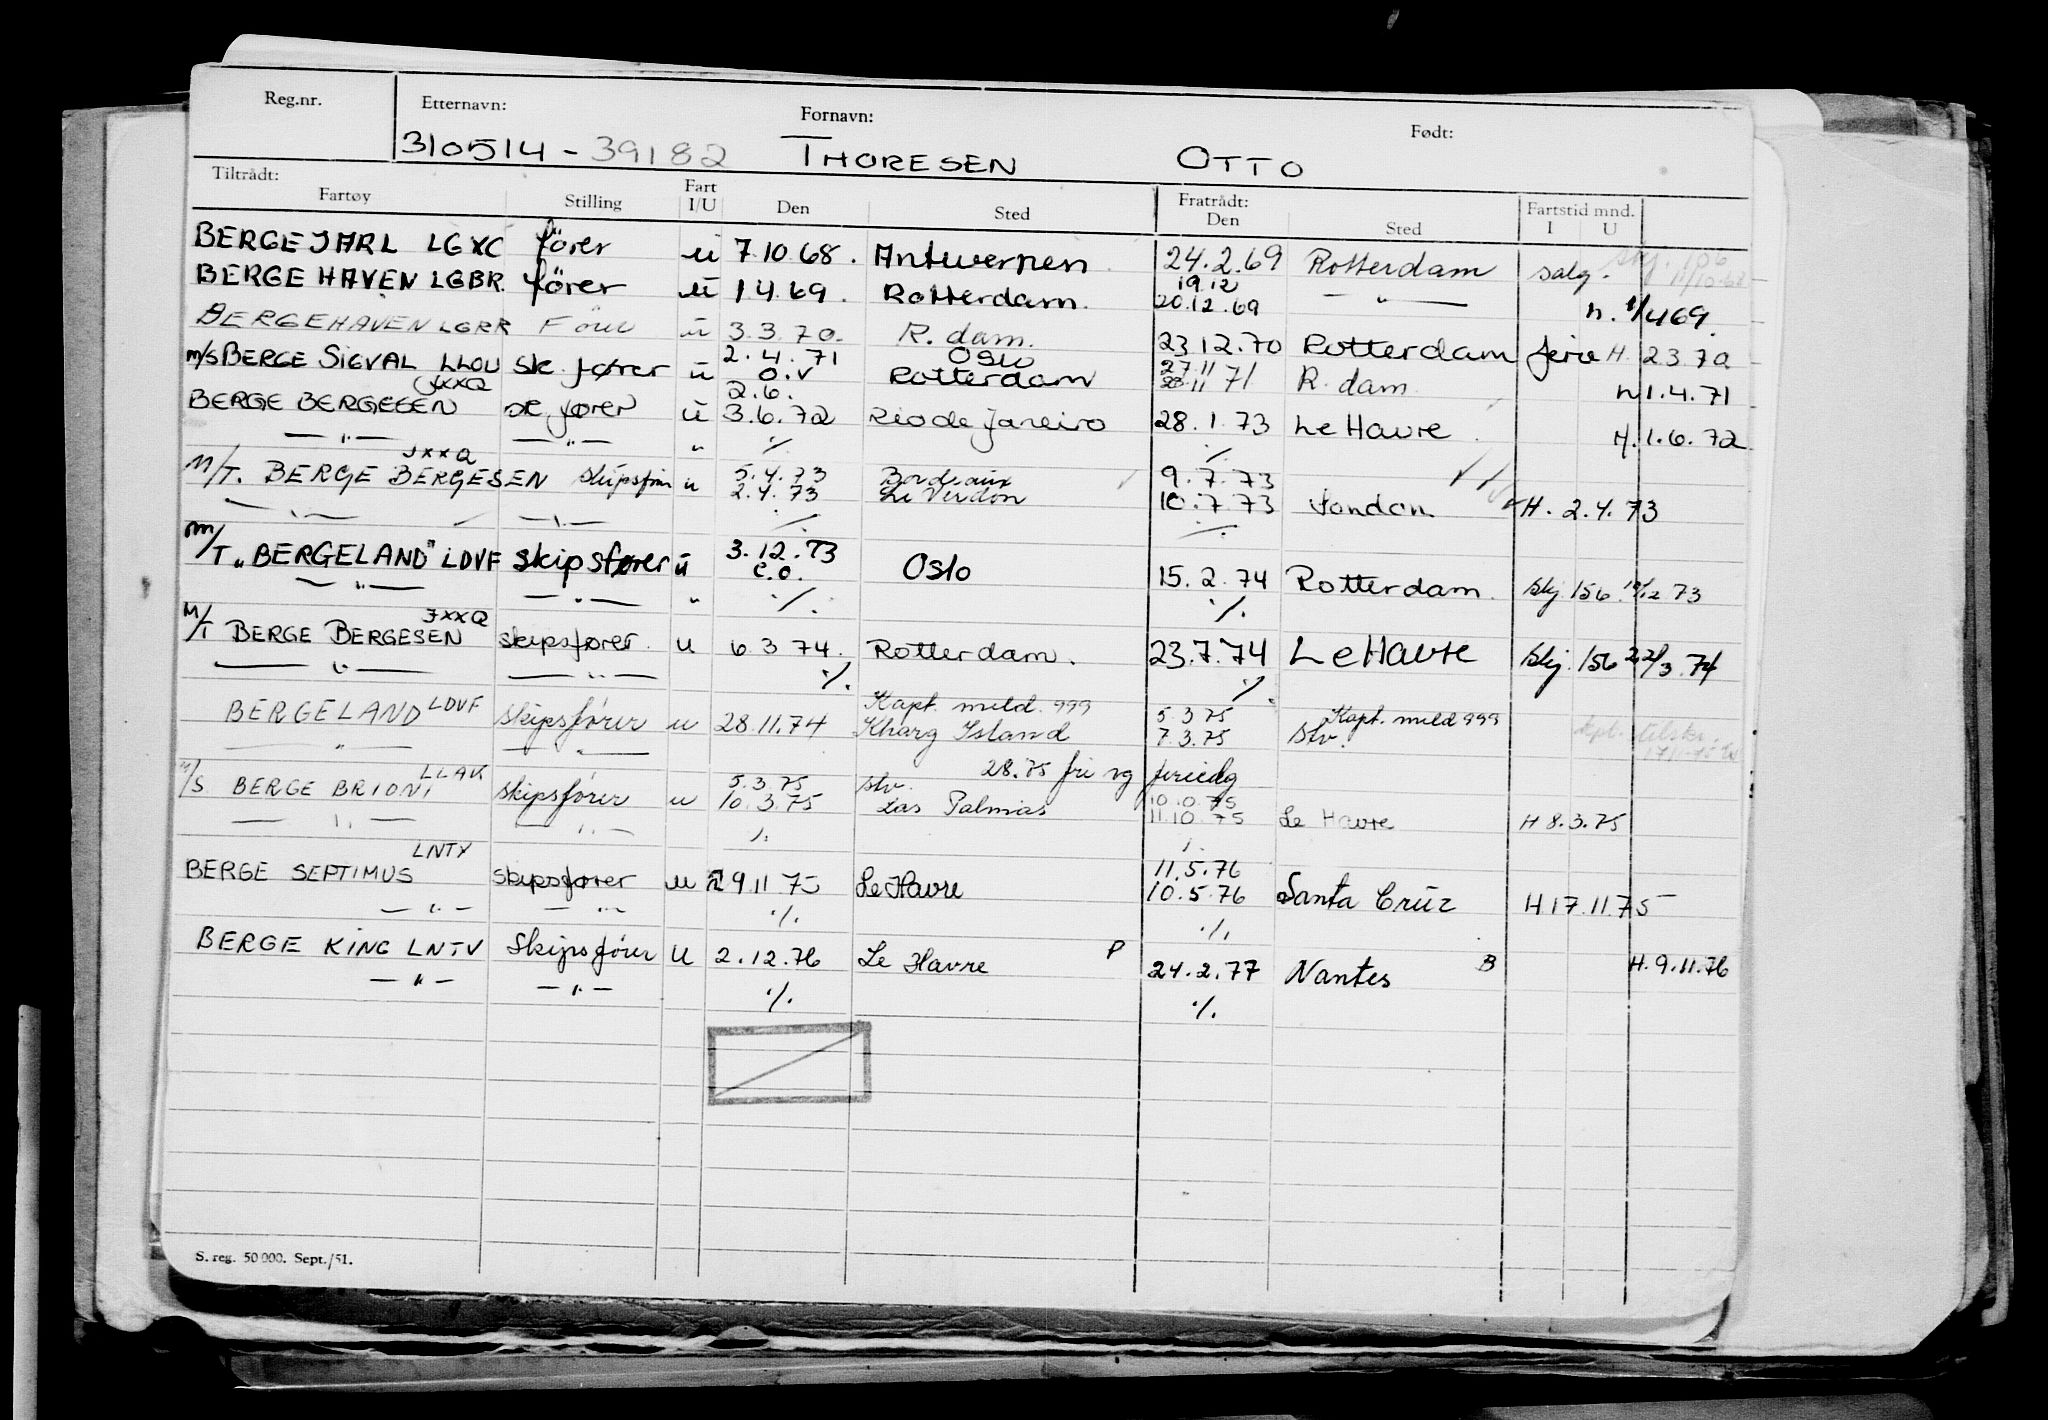 Reg.nr. Etternavn: Fornavn: Født:
310514 - 39182 THORESEN OTTO
Tiltrådt: Fratrådt:
Fartøy Stilling Fart I/U Den Sted Den Sted Fartstid mnd. I U
BERGE JARL LGXC fører u 7.10.68. Antwerpen 24.2.69 Rotterdam salg.
BERGE HAVEN LGBR. fører u 1.4.69. Rotterdam. 19.12 20.12.69 — " — h. 1/469.
BERGEHAVEN LGRR Fører u 3.3.70. R.dam. 23.12.70 Rotterdam ferie H. 2370
M/S BERGE SIGVAL LLOU sk.fører u 2.4.71 O.V Oslo Rotterdam 27.11 28.11 71 R.dam. h 1.4.71
JXXQ
BERGE BERGESEN sk fører u 2.6. 3.6.72 Rio de Janeiro 28.1.73 Le Havre H. 1.6.72
— " — — " — " ./. ./.
JXXQ
M/T. BERGE BERGESEN skipsfører u 5.4.73 2.4.73 Bordeaux Le Verdon 9.7.73 10.7.73 London H. 2.4.73
— " — — " — ./. ./.
M/T „BERGELAND" LDVF skipsfører u 3.12.73 e.o. Oslo 15.2.74 Rotterdam. skj 156 19/12 73
— " — — " — " ./. ./.
JXXQ
M/T BERGE BERGESEN skipsfører. u 6.3.74. Rotterdam. 23.7.74 Le Havre skj. 156 21/3.74
— " — — " — ./. ./.
BERGELAND LDVF skipsfører u 28.11.74 Kapt. meld. 999 Kharg Island 5.3.75 7.3.75 Kapt. meld 999 stv.
— " — — " — 28.75 fri og feriedg
M/S BERGE BRIONI LLAK skipsfører u 5.3.75 10.3.75 stv. Las Palmas 10.10.75 11.10.75 Le Havre H 8.3.75
— " — — " — ./. ./.
LNTY
BERGE SEPTIMUS skipsfører u 29.11.75 Le Havre 11.5.76 10.5.76 Santa Cruz H.17.11.75
— " — — " — ./. ./.
BERGE KING LNTV Skipsfører U 2.12.76 Le Havre P 24.2.77 Nantes B H.9.11.76
— " — — " — ./. ./.
S. reg. 50 000. Sept./51.